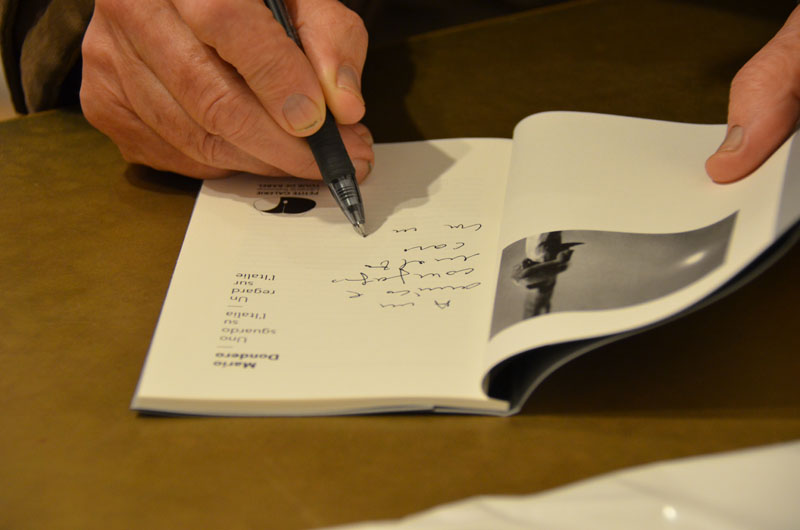 Mario
Dondero
Uno
sguardo
su
l'Italia
Un
regard
sur
l'Italie
PETITE GALERIE
TOUR DE BABEL
A un
amico e
compagno
molto
caro